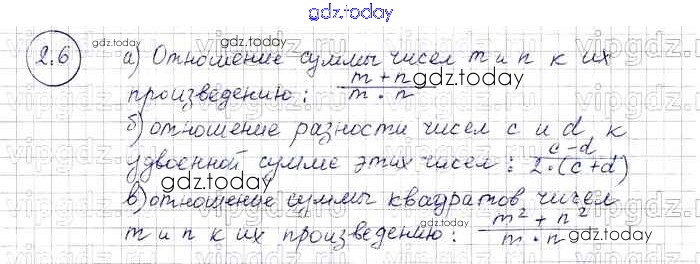 gdz.today
2.6 gdz.today
а) Отношение суммы чисел m и n к их
произведению: m + n / m · n gdz.today
б) отношение разности чисел c и d к
удвоенной сумме этих чисел: c - d / 2 · (c + d)
gdz.today
в) отношение суммы квадратов чисел
m и n к их произведению: m² + n² / m · n
gdz.today
gdz.today